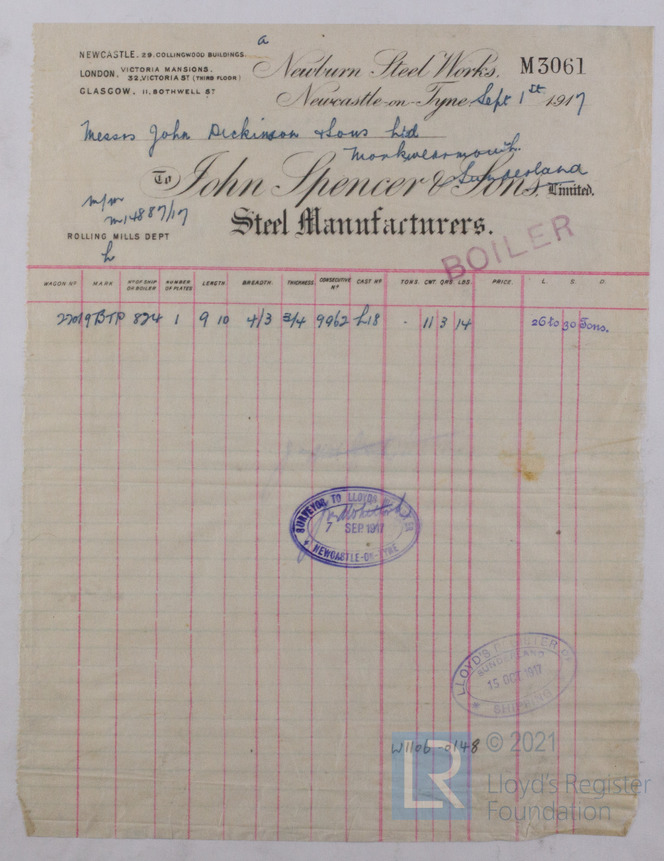 a
NEWCASTLE. 29. COLLINGWOOD BUILDINGS.
LONDON, VICTORIA MANSIONS, 32, VICTORIA ST (THIRD FLOOR)
GLASGOW, 11, BOTHWELL ST
Newburn Steel Works, M3061
Newcastle-on-Tyne Sept 1st 1917
Messrs John Dickinson & Sons Ltd
Monkwearmouth
Sunderland
To John Spencer & Sons, Limited.
m14887/17
Steel Manufacturers.
ROLLING MILLS DEPT
h
BOILER
WAGON No MARK No OF SHIP OR BOILER NUMBER OF PLATES LENGTH BREADTH. THICKNESS. CONSECUTIVE No CAST No TONS. CWT. QRS. LBS. PRICE. L. S. D.
22019 BTP 824 1 9 10 4/3 3/4 9962 h18 . 11 3 14 26 to 30 Tons.
SURVEYOR TO LLOYDS
7 SEP 1917
NEWCASTLE-ON-TYNE
LLOYD'S REGISTER OF
SUNDERLAND
15 OCT 1917
SHIPPING
W1106-0148
LR
© 2021
Lloyd's Register
Foundation